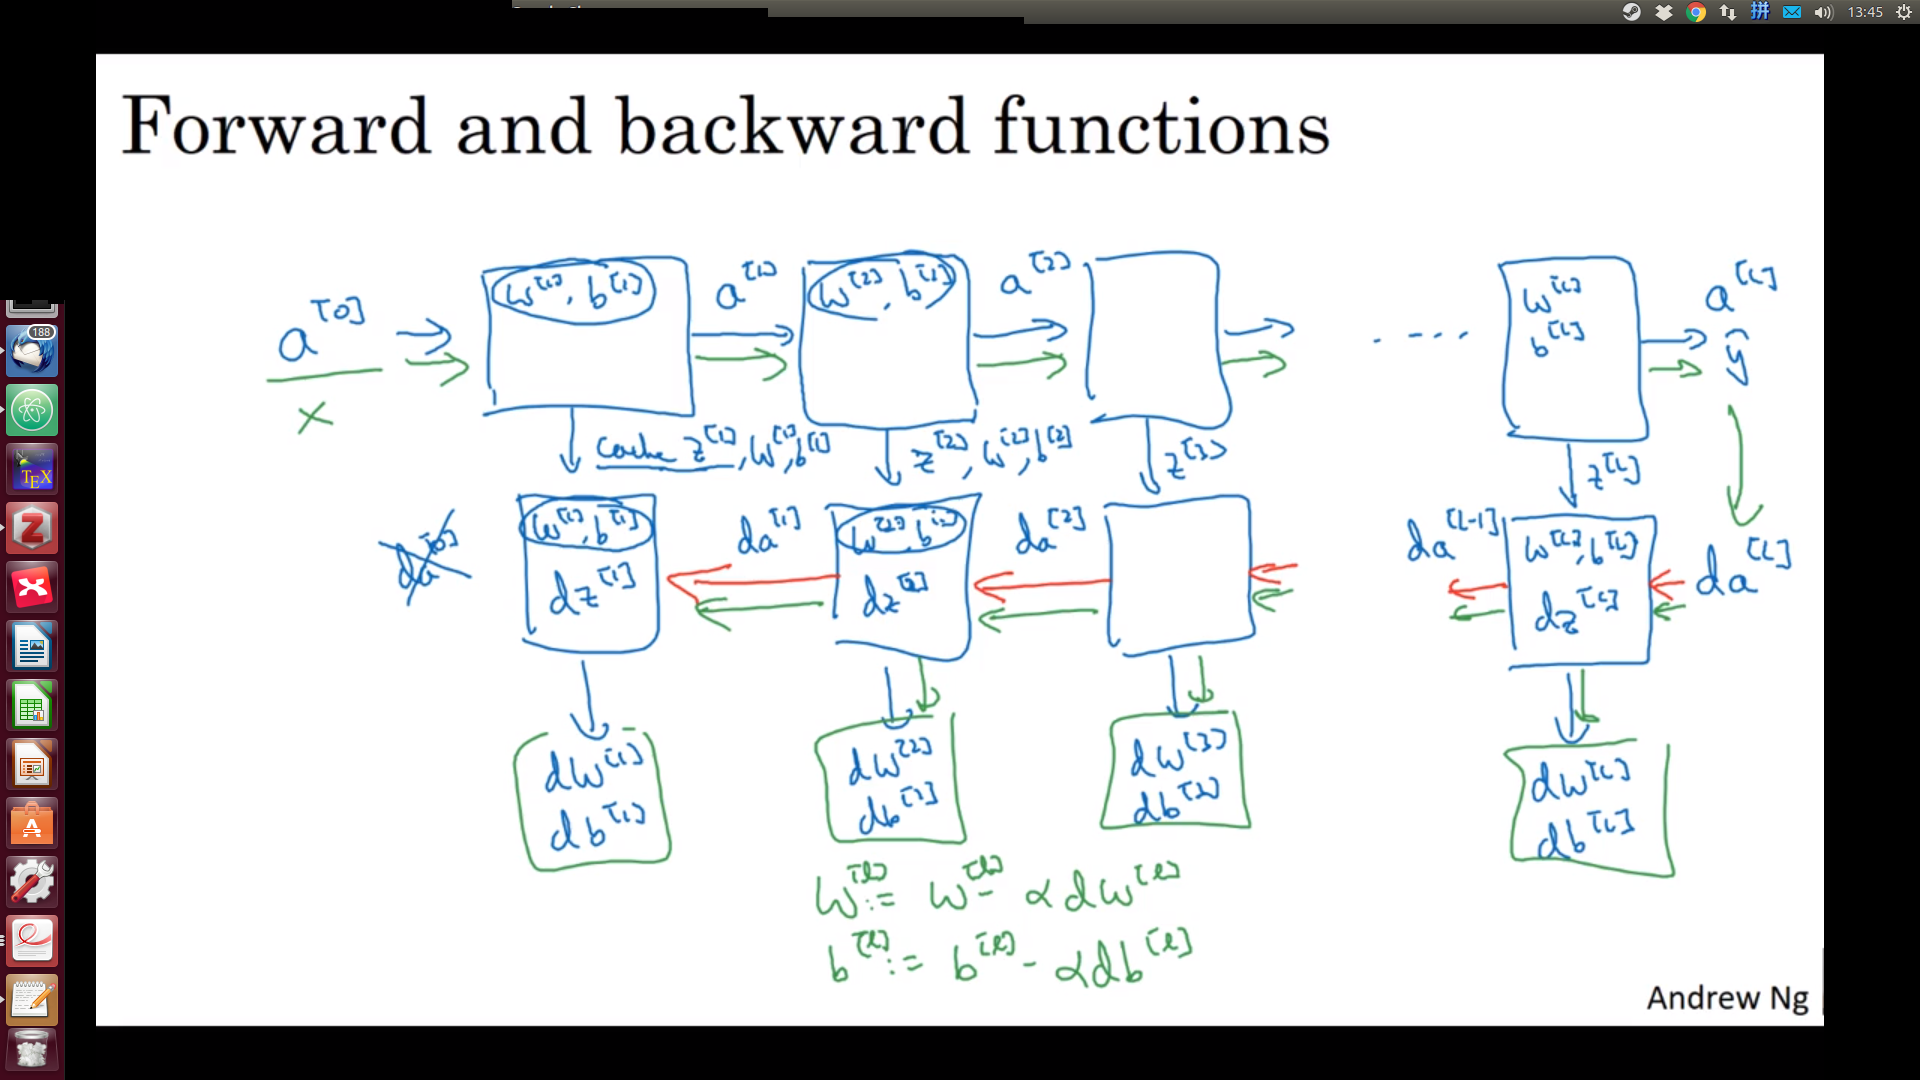 13:45
188
Forward and backward functions
a^[0] w^[1], b^[1] a^[1] w^[2], b^[2] a^[2] w^[L] a^[L]
x b^[L] ŷ
cache z^[1], w^[1], b^[1] z^[2], w^[2], b^[2] z^[3] z^[L]
da^[0] w^[1], b^[1] da^[1] w^[2], b^[2] da^[2] da^[L-1] w^[L], b^[L] da^[L]
dz^[1] dz^[2] dz^[L]
dw^[1] dw^[2] dw^[3] dw^[L]
db^[1] db^[2] db^[3] db^[L]
w^[l] := w^[l] - α dw^[l]
b^[l] := b^[l] - α db^[l]
Andrew Ng
TEX